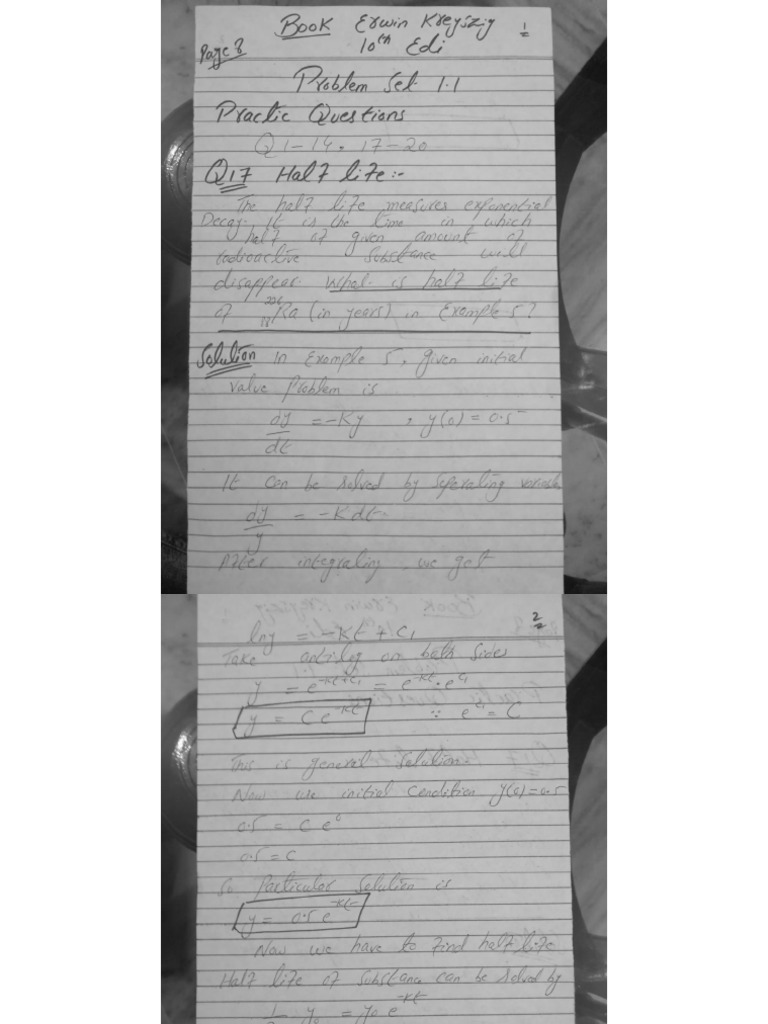 Book Erwin Kreyszig 1
Page 8 10th Edi
Problem Set 1.1
Practic Questions
Q1-14, 17-20
Q17 Half life:-
The half life measures exponential
Decay. It is the time in which
half of given amount of
radioactive substance will
disappear. What is half life
of 226 88 Ra (in years) in Example 5?
Solution In Example 5, given initial
value Problem is
dy/dt = -Ky , y(0) = 0.5
It can be solved by seperating variable
dy/y = -K dt
After integrating we get
2
lny = -Kt + C1
Take antilog on both sides
y = e^-Kt+C1 = e^-Kt . e^C1
y = C e^-Kt ∵ e^C1 = C
This is general solution.
Now use initial condition y(0)=0.5
0.5 = C e^0
0.5 = C
So Particular solution is
y = 0.5 e^-Kt
Now we have to find half life
Half life of substance can be solved by
1/2 y0 = y0 e^-Kt